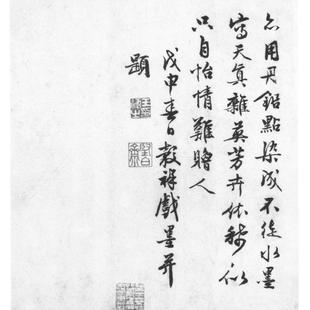 亦用丹鉛點染成不從水墨
寫天真雜英芳卉依稀似
只自怡情難贈人
戊申春日穀祥戲墨并
題